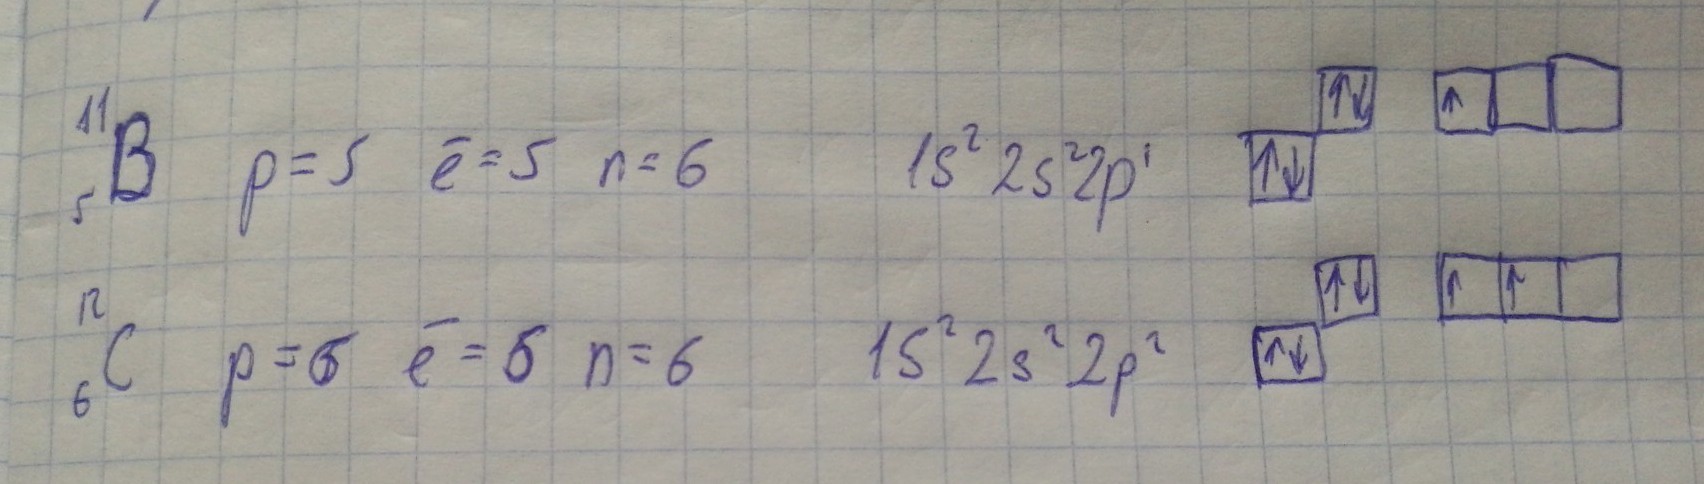 ¹¹₅B p=5 ē=5 n=6 1s²2s²2p¹ ↑↓ ↑↓ ↑
¹²₆C p=6 ē=6 n=6 1s²2s²2p² ↑↓ ↑↓ ↑ ↑